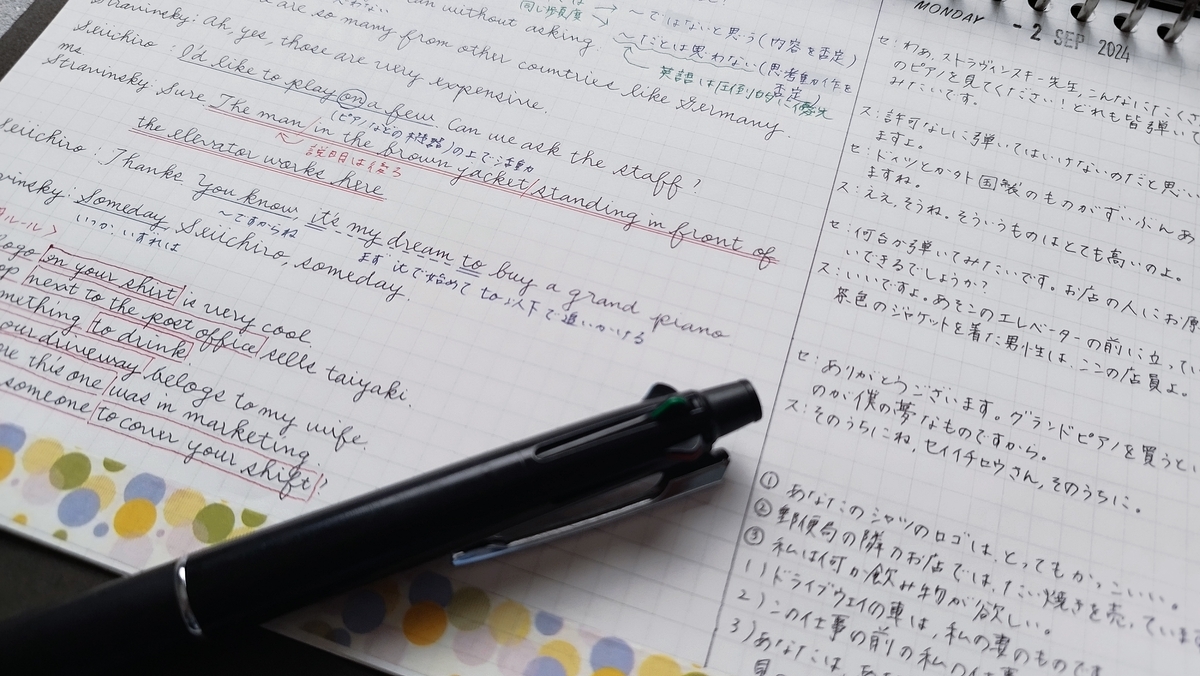 can without asking.
are so many from other countries like Germany.
Stravinsky: Ah, yes, those are very expensive.
Seiichiro: I'd like to play on a few. Can we ask the staff?
ms.
Stravinsky: Sure. The man in the brown jacket standing in front of
the elevator works here
Seiichiro: Thanks. You know, it's my dream to buy a grand piano
Stravinsky: Someday, Seiichiro, someday.
ルール>
logo on your shirt is very cool.
next to the post office sells taiyaki.
something to drink.
your driveway belogs to my wife.
this one was in marketing.
someone to cover your shift?
〜ではないと思う(内容を否定)
〜だとは思わない(思考動作を否定)
英語は圧倒的に優先
(ピアノなどの機器)の上で活動
説明は後ろ
〜ですからね
まず itで始めて to以下で追いかける
いつか、いずれは
MONDAY - 2 SEP 2024
セ:わあ、ストラヴィンスキー先生、こんなにたくさ
のピアノを見てください!どれも皆弾いて
みたいです。
ス:許可なしに弾いてはいけないのだと思い
ますよ。
セ:ドイツとか外国製のものがずいぶんあ
ますね。
ス:ええ、そうね。そういうものはとても高いのよ。
セ:何台か弾いてみたいです。お店の人にお願
いできるでしょうか?
ス:いいですよ。あそこのエレベーターの前に立ってい
茶色のジャケットを着た男性は、ここの店員よ。
セ:ありがとうございます。グランドピアノを買うとい
のが僕の夢なものですから。
ス:そのうちにね、セイイチロウさん、そのうちに。
① あなたのシャツのロゴは、とってもかっこいい。
② 郵便局の隣のお店では、たい焼きを売っていま
③ 私は何か飲み物が欲しい。
1) ドライブウェイの車は、私の妻のものです
2) この仕事の前の私の仕事
3) あなたは、あ